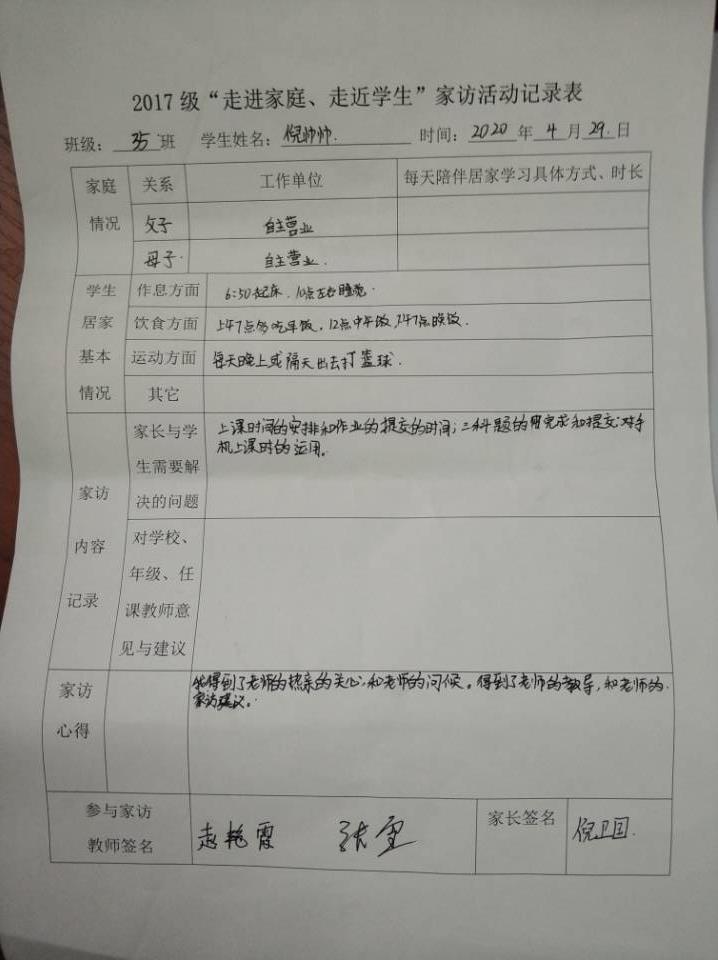 2017级“走进家庭、走近学生”家访活动记录表
班级：35班 学生姓名：倪帅帅. 时间：2020年4月29.日
家庭 关系 工作单位 每天陪伴居家学习具体方式、时长
情况 父子 自主营业
母子. 自主营业.
学生 作息方面 6:50起床. 10点左右睡觉.
居家 饮食方面 上午7点多吃早饭, 12点中午饭, 下午7点晚饭.
基本 运动方面 每天晚上或隔天出去打篮球.
情况 其它
家长与学 上课时间的安排和作业的提交的时间; 三科题的完成和提交; 对手
生需要解 机上课时的运用。
家访 决的问题
内容 对学校、
年级、任
记录 课教师意
见与建议
家访 得到了老师的热亲的关心, 和老师的问候。得到了老师的教导, 和老师的.
心得 家访建议。
参与家访 家长签名
教师签名 赵艳霞 张雪 倪卫国.